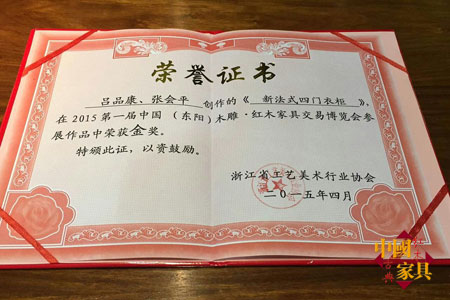 荣誉证书
吕品康、张会平 创作的《 新法式四门衣柜 》,
在2015第一届中国 (东阳) 木雕·红木家具交易博览会参
展作品中荣获金奖。
特颁此证, 以资鼓励。
浙江省工艺美术行业协会
二〇一五年四月
中國
家具
古典